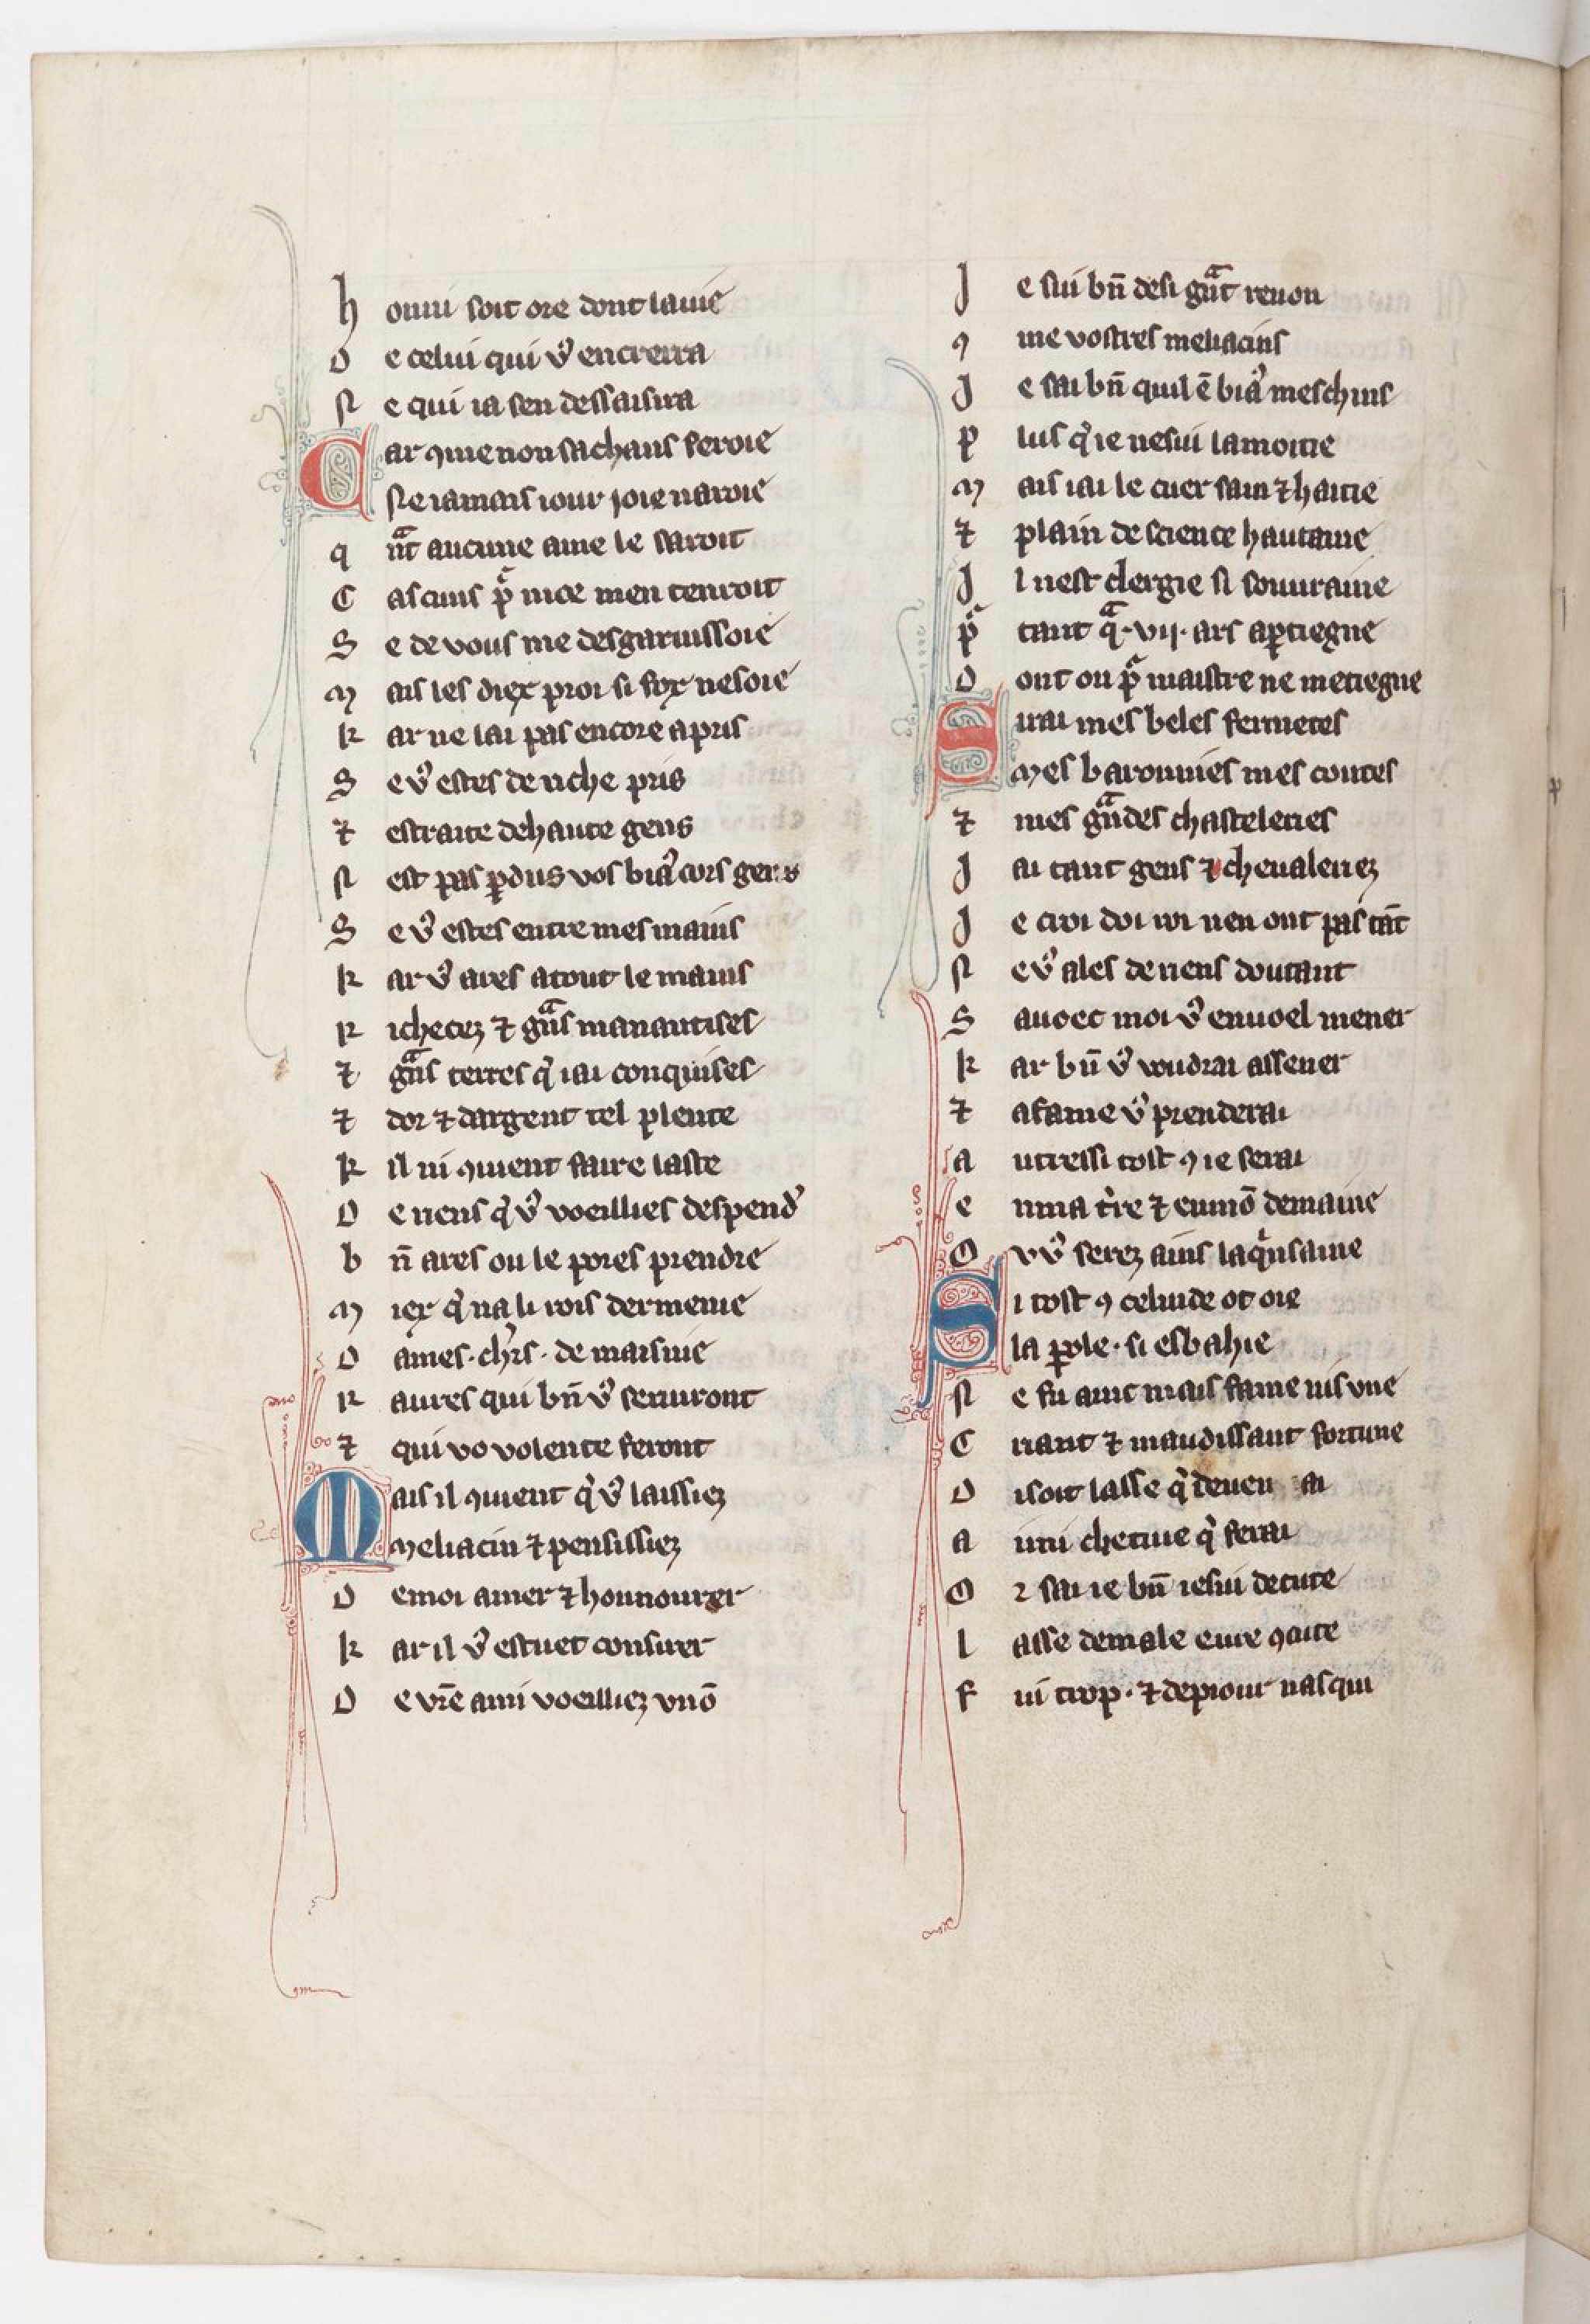 h onni soit ore dont la uie
D e celui qui vꝰ en crerra
N e qui ia sen dessaisira
C ar ꝯme non sachans feroie
Ne iamais iour joie naroie
q nͣt aucune ame le saroit
C ascuns pͬ nice men tenroit
S e de vous me desgarnissoie
M ais les diex proi si fox ne soie
K ar ne lai pas encore apris
S e vꝰ estes de riche pris
⁊ estraite de haute gens
N est pas ꝑdus vos biaꝰ cors gens
S e vꝰ estes entre mes mains
K ar vꝰ ares a tout le mains
R ichecez ⁊ gͣns manantises
⁊ gͣns terres q̓ iai conquises
⁊ dor ⁊ dargent tel plente
K il ni ꝯuient faire laste
D e riens q̓ vꝰ voeillies despendʼ
b n̄ ares ou le pores prendre
M iex q̓ na li rois dermenie
D ames · chʼrs · de maisnie
R aures qui bn̄ vꝰ seruiront
⁊ qui vo volente feront
M ais il ꝯuient q̓ vꝰ laissiez
Meliacin ⁊ pensissiez
D e moi amer ⁊ honnourer
K ar il vꝰ estuet consirer
D e vr̄e ami voeilliez vnō
J e sui bn̄ de si gͣnt renon
ꝯ me vostres meliacins
J e sai bn̄ quil ē biaꝰ meschins
P lus q̓ ie ne sui la moitie
M ais iai le cuer sain ⁊ haitie
⁊ plain de science hautaine
J l nest clergie si souuraine
pͬ tant qͣ · vij · ars aꝑtiegne
D ont on pͬ maistre ne me tiegne
S irai mes beles fermetes
Mes baronnies mes contes
⁊ mes gͣndes chasteleries
J ai tant gens ⁊ cheualeriez
J e croi doi roi nen ont pas tāt
N e vꝰ ales de riens doutant
S auoec moi vꝰ en uoel mener
K ar bn̄ vꝰ voudrai assener
⁊ a fame vꝰ prenderai
A utressi tost ꝯ ie serai
e nma t̓re ⁊ en mō demaine
O v vꝰ serez ains la qͥnsaine
S i tost ꝯ celinde ot oie
la ꝑole · si esbahie
N e fu ainc mais fame nis vne
C riant ⁊ maudissant fortune
D isoit lasse q̓ deuen ai
A imi chetiue q̓ ferai
O r sai ie bn̄ ie sui decute
l asse de male eure ꝯcute
F ui trop · ⁊ de piour nasqui